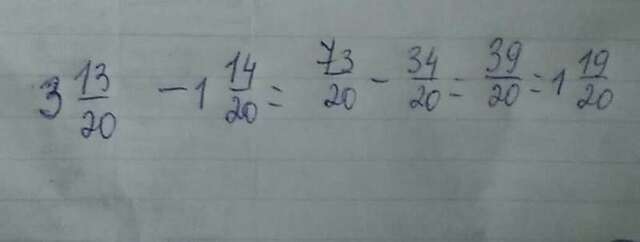 3 13/20 - 1 14/20 = 73/20 - 34/20 = 39/20 = 1 19/20